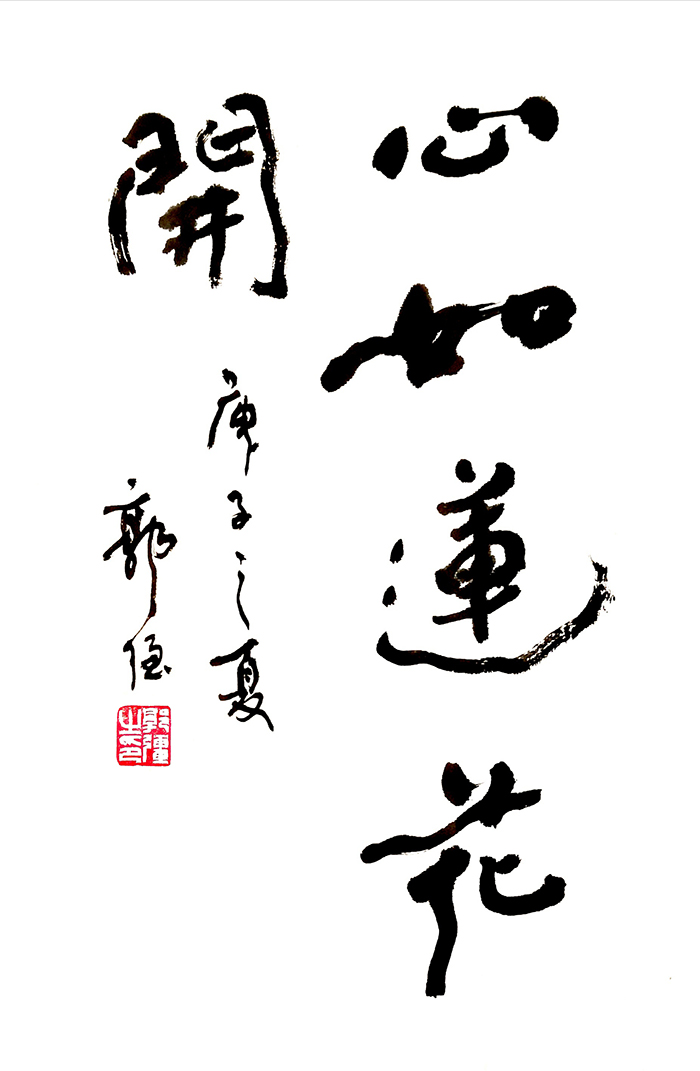 心如蓮花
開
庚子之夏
郭